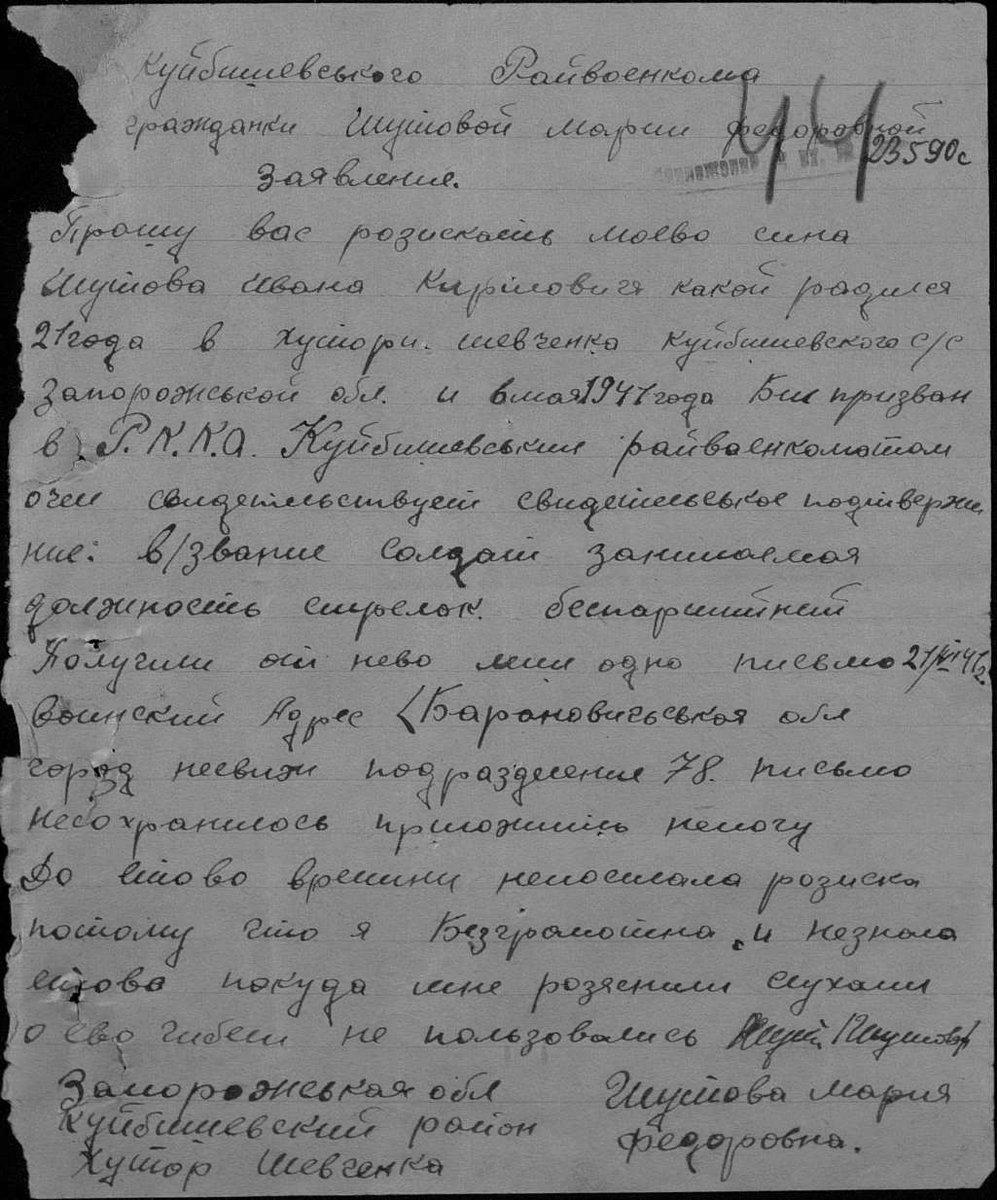 Куйбишевського Райвоенкома
гражданки Шутовой Марии Федоровной
44
23590с
Заявление.
Прошу вас розискать моево сина
Шутова Ивана Кириловича какой радился
21 года в хутори. Шевченка Куйбишевского с/с
Запорожськой обл. и вмая 1941 года Бил призван
в Р.К.К.А. Куйбишевським райваенкоматом
очем свидетельствует свидетельськое подтвержи
ние: в/звание Солдат занимаемая
должность стрелок. беспартийний
Получили от нево мии одно письмо 21/VI 41г.
Воинский Адрес (Барановичьськая обл
город несвиж подразделение 78. письмо
несохранилось приложить немогу
До етово времини непосилала розиска
потому что я Безграмотна и незнала
етово покуда мне розяснили слухами
о ево гибели не пользовались Шутова
Запорожськая обл
Шутова Мария
Куйбишевский район
Федоровна.
Хутор Шевченка